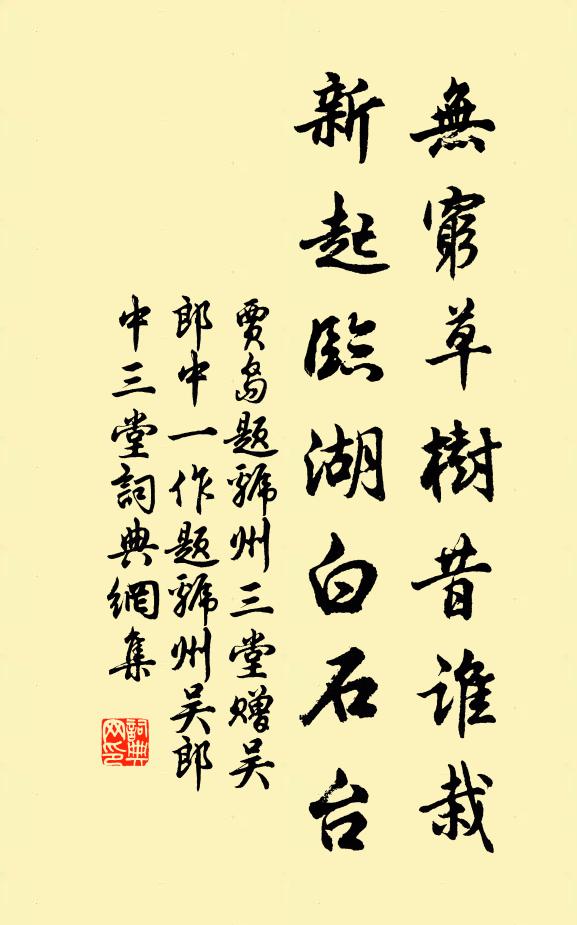 無窮草樹昔誰栽
新起臨湖白石台
賈島題虢州三堂贈吴
郎中一作題虢州吴郎
中三堂詞典網集
詞典网印